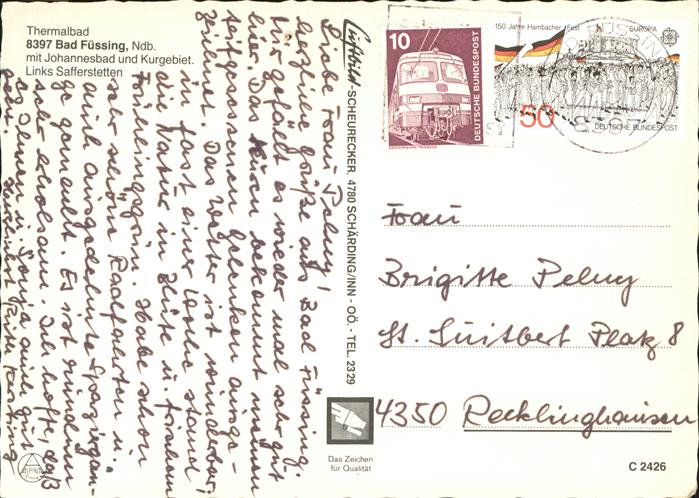 Thermalbad
8397 Bad Füssing, Ndb.
mit Johannesbad und Kurgebiet.
Links Safferstetten
Liebe Frau Pelny!
herzliche Grüße aus Bad Füssing.
Mir gefällt es wieder mal sehr gut
hier. Das Kuren bekommt meinen
Gelenken ausge-
zeichnet. Das Wetter ist wunderbar,
in fast einer Woche stand
die Natur in Blüte u. frischem
Frühlingsgrün. Habe schon
sehr schöne Radfahrten u.
auch ausgedehnte Spaziergän-
ge gemacht. Es ist rundum
sehr erholsam. Ich hoffe, daß
es Ihnen u. auch gut
geht.
Luftbild-SCHEURECKER, 4780 SCHÄRDING/INN - OÖ. - TEL. 2329
10
DEUTSCHE BUNDESPOST
150 Jahre Hambacher Fest
EUROPA
50
DEUTSCHE BUNDESPOST
Frau
Brigitte Pelny
St. Suitbert Platz 8
4350 Recklinghausen
Das Zeichen
für Qualität
C 2426